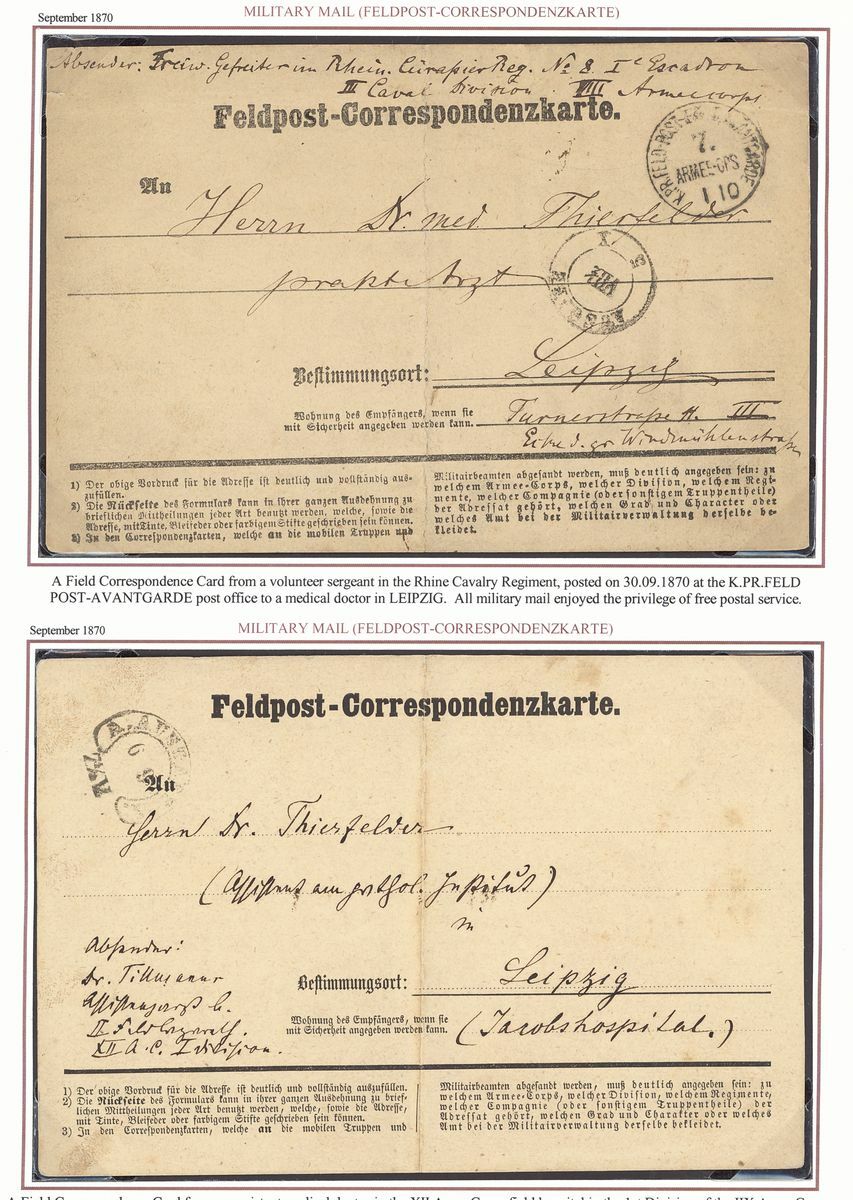 September 1870
MILITARY MAIL (FELDPOST-CORRESPONDENZKARTE)
Absender: Freiw. Gefreiter im Rhein. Cürassier Reg. No 8 Ie Escadron
III Caval Division VIII Armeecorps.
Feldpost-Correspondenzkarte.
K.PR.FELD-POST- AVANTGARDE
7.
ARMEE-CPS
1 10
An
Herrn Dr. med. Thierfelder
prakt. Arzt
Bestimmungsort: Leipzig
Wohnung des Empfängers, wenn sie
mit Sicherheit angegeben werden kann. Turnerstraße 11. III
Ecke d. gr. Windmühlenstraße
1) Der obige Vordruck für die Adresse ist deutlich und vollständig aus-
zufüllen.
2) Die Rückseite des Formulars kann in ihrer ganzen Ausdehnung zu
brieflichen Mittheilungen jeder Art benutzt werden, welche, sowie die
Adresse, mit Tinte, Bleifeder oder farbigem Stifte geschrieben sein können.
3) In den Correspondenzkarten, welche an die mobilen Truppen und
Militairbeamten abgesandt werden, muß deutlich angegeben sein: zu
welchem Armee-Corps, welcher Division, welchem Regi-
mente, welcher Compagnie (oder sonstigem Truppentheile)
der Adressat gehört, welchen Grad und Character oder
welches Amt bei der Militairverwaltung derselbe be-
kleidet.
A Field Correspondence Card from a volunteer sergeant in the Rhine Cavalry Regiment, posted on 30.09.1870 at the K.PR.FELD
POST-AVANTGARDE post office to a medical doctor in LEIPZIG. All military mail enjoyed the privilege of free postal service.
September 1870
MILITARY MAIL (FELDPOST-CORRESPONDENZKARTE)
Feldpost-Correspondenzkarte.
An
Herrn Dr. Thierfelder
(Assistent am pathol. Institut)
in
Absender:
Dr.
Bestimmungsort: Leipzig
Wohnung des Empfängers, wenn sie
mit Sicherheit angegeben werden kann. (Jacobshospital.)
XII A.C. I Division.
1) Der obige Vordruck für die Adresse ist deutlich und vollständig auszufüllen.
2) Die Rückseite des Formulars kann in ihrer ganzen Ausdehnung zu brief-
lichen Mittheilungen jeder Art benutzt werden, welche, sowie die Adresse,
mit Tinte, Bleifeder oder farbigem Stifte geschrieben sein können.
3) In den Correspondenzkarten, welche an die mobilen Truppen und
Militairbeamten abgesandt werden, muß deutlich angegeben sein: zu
welchem Armee-Corps, welcher Division, welchem Regimente,
welcher Compagnie (oder sonstigem Truppentheile) der
Adressat gehört, welchen Grad und Charakter oder welches
Amt bei der Militairverwaltung derselbe bekleidet.